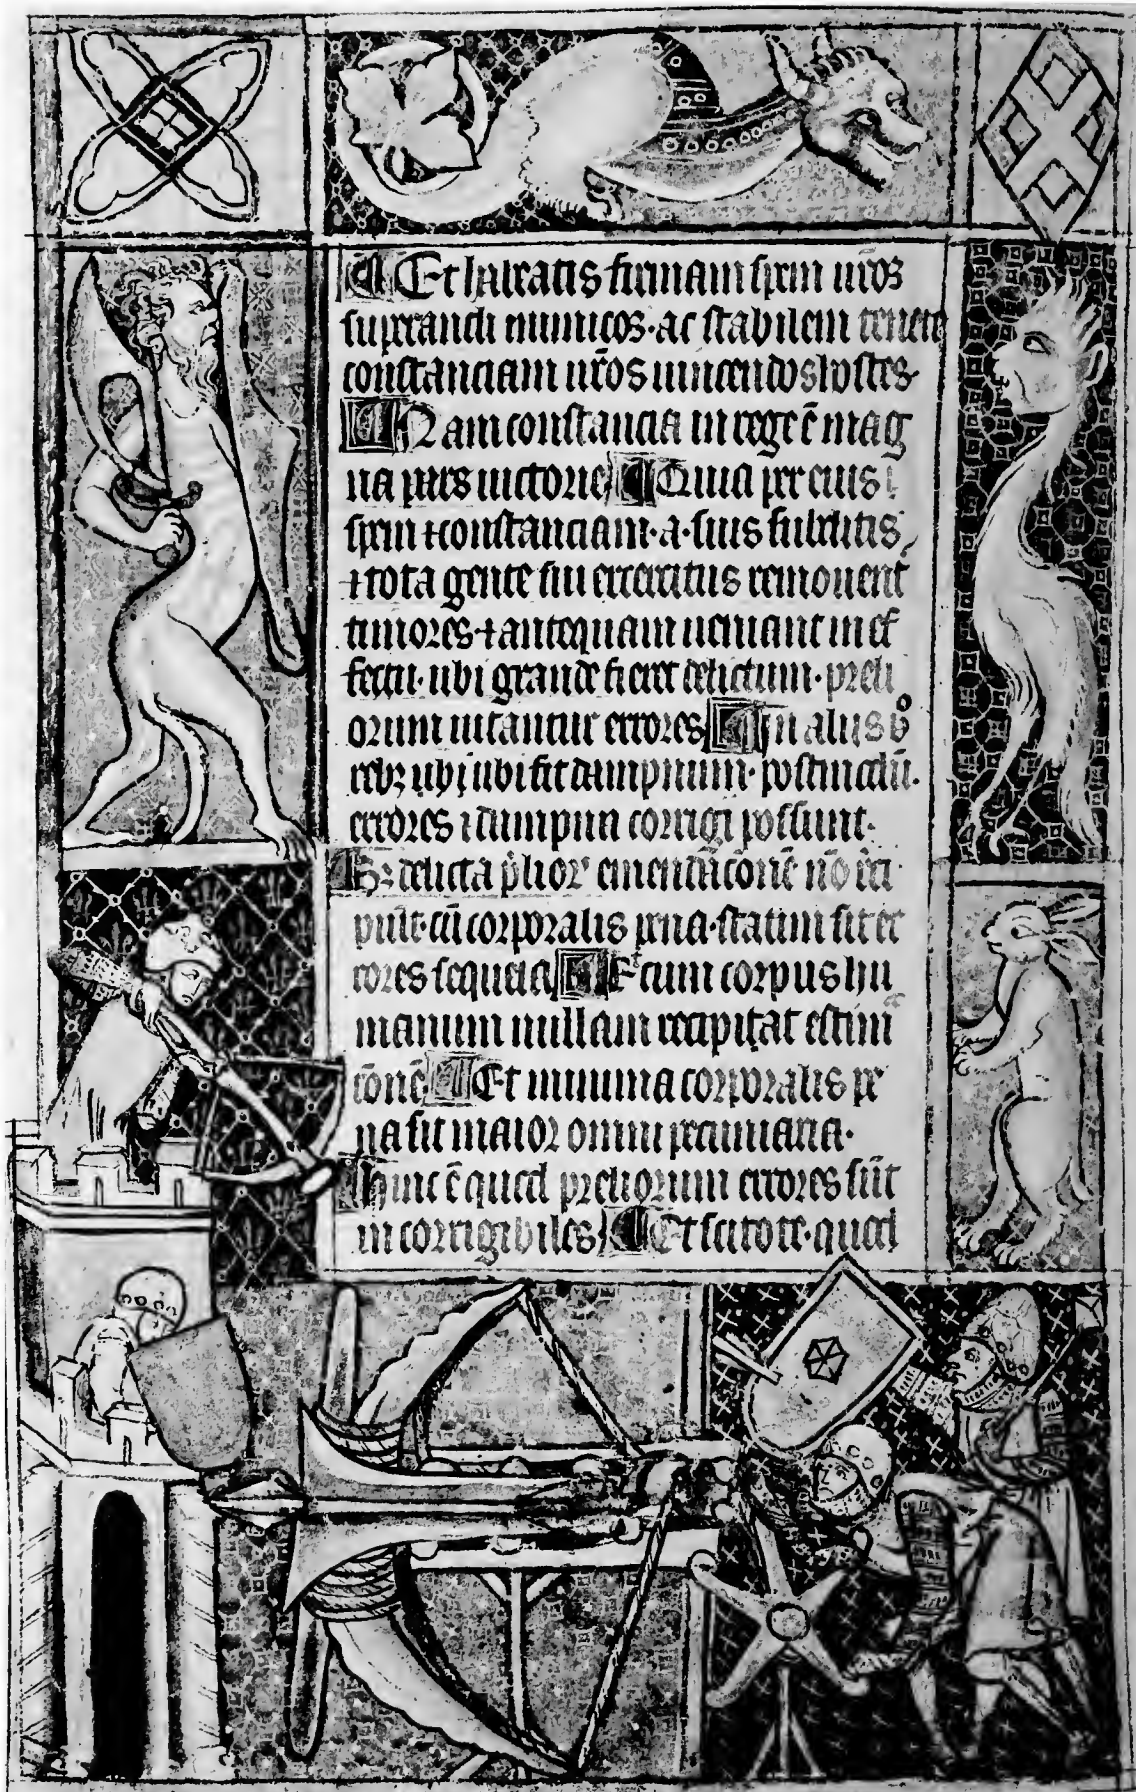 Et habeatis firmam spem ur̄os
superandi inimicos · ac stabilem tenete
constanciam ur̄os uincendos hostes ·
Nam constancia in rege ē mag
na pars uictorie Quia per eius
spem ⁊ constanciam · a · suis subditis
⁊ tota gente sui excercitus remouent̄
timores · ⁊ antequam ueniant in ef
fectū · ubi grande fieret delictum · preli
orum uitantur errores In alijs ūo
rebꝫ ubi fit dampnum · postmodū ·
errores ⁊ dampna corrigi possunt ·
Sꝫ delicta p̄lior̄ emendac̄onē nō reci
piūt · cū corporalis pena · statim sit er
rores sequela Et cum corpus hu
manum nullam recipiat estima
c̄onē Et minima corporalis pe
na sit maior omni pecuniaria ·
Hinc ē quod preliorum errores sūt
incorrigibiles Et scitote · quod